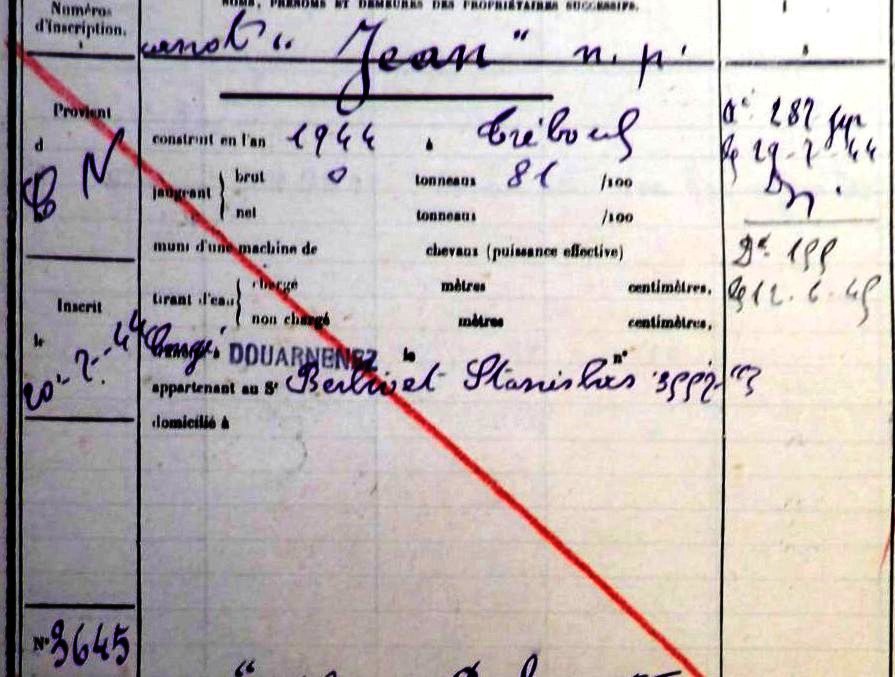 Numéros
d'inscription.
NOMS, PRÉNOMS ET DEMEURES DES PROPRIÉTAIRES SUCCESSIFS.
canot " Jean " n. p.
Provient
d
C N
construit en l'an 1944 à Tréboul
jaugeant } brut 0 tonneaux 81 /100
net tonneaux /100
muni d'une machine de chevaux (puissance effective)
tirant d'eau { chargé mètres centimètres.
non chargé mètres centimètres.
Congé DOUARNENEZ le n°
appartenant au Sr Berlivet Stanislas
domicilié à
Inscrit
le
20-7-44
N° 3645
Dt 287
le 29-7-44
Dz.
Dt 199
le 12.6.45